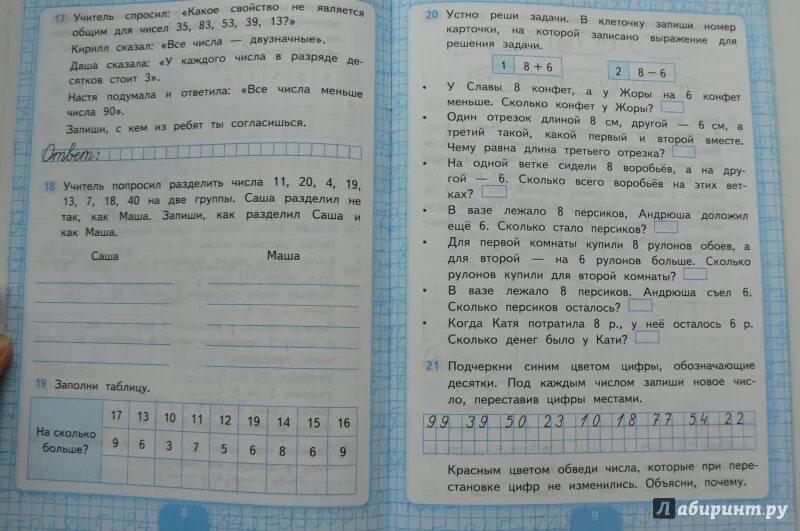 17 Учитель спросил: «Какое свойство не является
общим для чисел 35, 83, 53, 39, 13?»
Кирилл сказал: «Все числа — двузначные».
Даша сказала: «У каждого числа в разряде де-
сятков стоит 3».
Настя подумала и ответила: «Все числа меньше
числа 90».
Запиши, с кем из ребят ты согласишься.
Ответ:
18 Учитель попросил разделить числа 11, 20, 4, 19,
13, 7, 18, 40 на две группы. Саша разделил не
так, как Маша. Запиши, как разделил Саша и
как Маша.
Саша Маша
19 Заполни таблицу.
17 13 10 11 12 19 14 15 16
9 6 3 7 5 8 6 8 9
На сколько
больше?
8
20 Устно реши задачи. В клеточку запиши номер
карточки, на которой записано выражение для
решения задачи.
1 8 + 6 2 8 – 6
• У Славы 8 конфет, а у Жоры на 6 конфет
меньше. Сколько конфет у Жоры?
• Один отрезок длиной 8 см, другой — 6 см, а
третий такой, какой первый и второй вместе.
Чему равна длина третьего отрезка?
• На одной ветке сидели 8 воробьёв, а на дру-
гой — 6. Сколько всего воробьёв на этих вет-
ках?
• В вазе лежало 8 персиков, Андрюша доложил
ещё 6. Сколько стало персиков?
• Для первой комнаты купили 8 рулонов обоев, а
для второй — на 6 рулонов больше. Сколько
рулонов купили для второй комнаты?
• В вазе лежало 8 персиков. Андрюша съел 6.
Сколько персиков осталось?
• Когда Катя потратила 8 р., у неё осталось 6 р.
Сколько денег было у Кати?
21 Подчеркни синим цветом цифры, обозначающие
десятки. Под каждым числом запиши новое чис-
ло, переставив цифры местами.
99 39 50 23 10 18 77 54 22
Красным цветом обведи числа, которые при пере-
становке цифр не изменились. Объясни, почему.
9
Лабиринт.ру